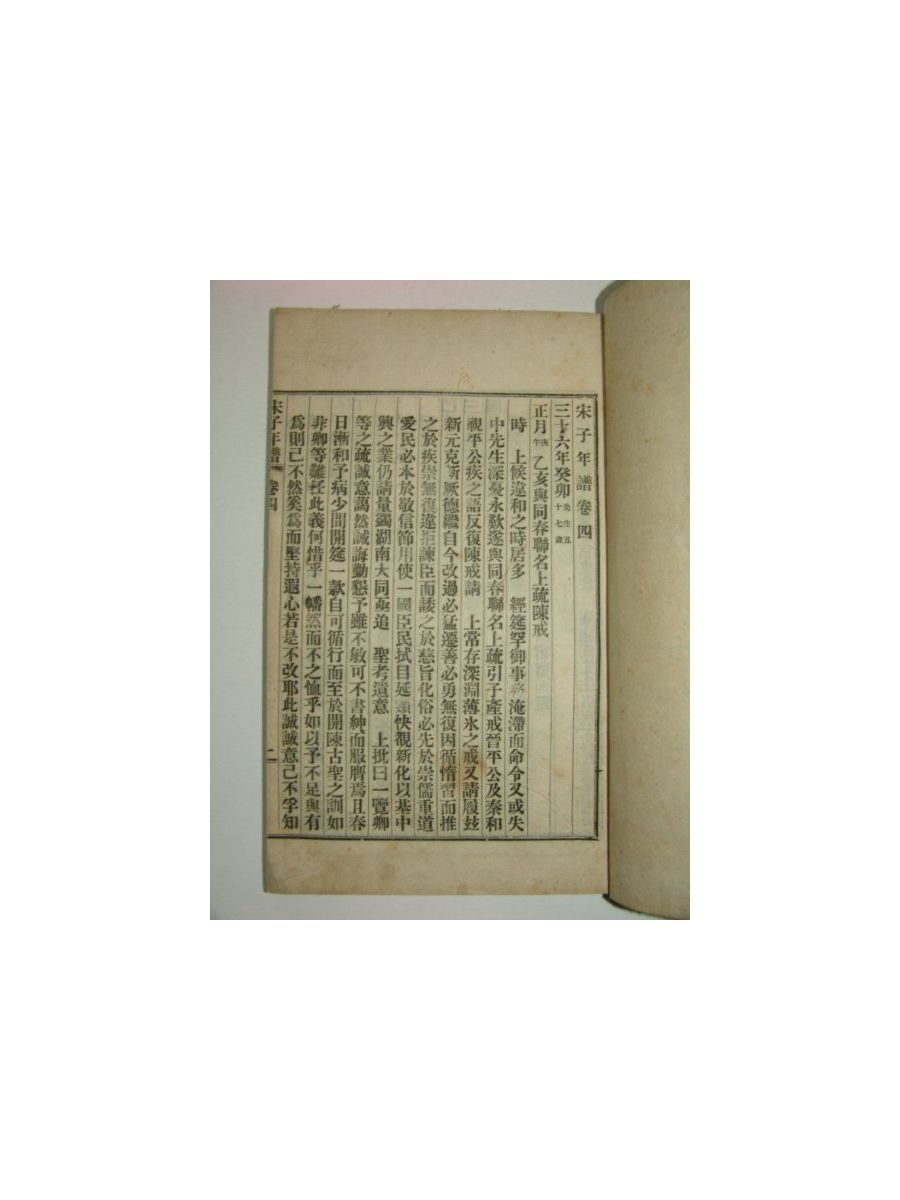 宋子年譜卷四
三十六年癸卯先生五十七歲
正月庚午乙亥與同春聯名上疏陳戒
時　上候違和之時居多　經筵罕御事務淹滯而命令又或失
中先生深憂永歎遂與同春聯名上疏引子產戒晉平公及秦和
視平公疾之語反復陳戒請　上常存深淵薄氷之戒又請履玆
新元克新厥德繼自今改過必猛遷善必勇無復因循惰習而推
之於疾祟無復違拒諫臣而諉之於慈旨化俗必先於崇儒重道
愛民必本於敬信節用使一國臣民拭目延頸快覩新化以基中
興之業仍請量蠲湖南大同亟追　聖考遺意　上批曰一覽卿
等之疏誠意藹然誠誨勤懇予雖不敏可不書紳而服膺焉且春
日漸和予病少間開筵一款自可循行而至於開陳古聖之訓如
非卿等難任此義何惜乎一幡然而不之恤乎如以予不足與有
爲則已不然奚爲而堅持遐心若是不改耶此誠誠意已不孚知
宋子年譜　卷四　二